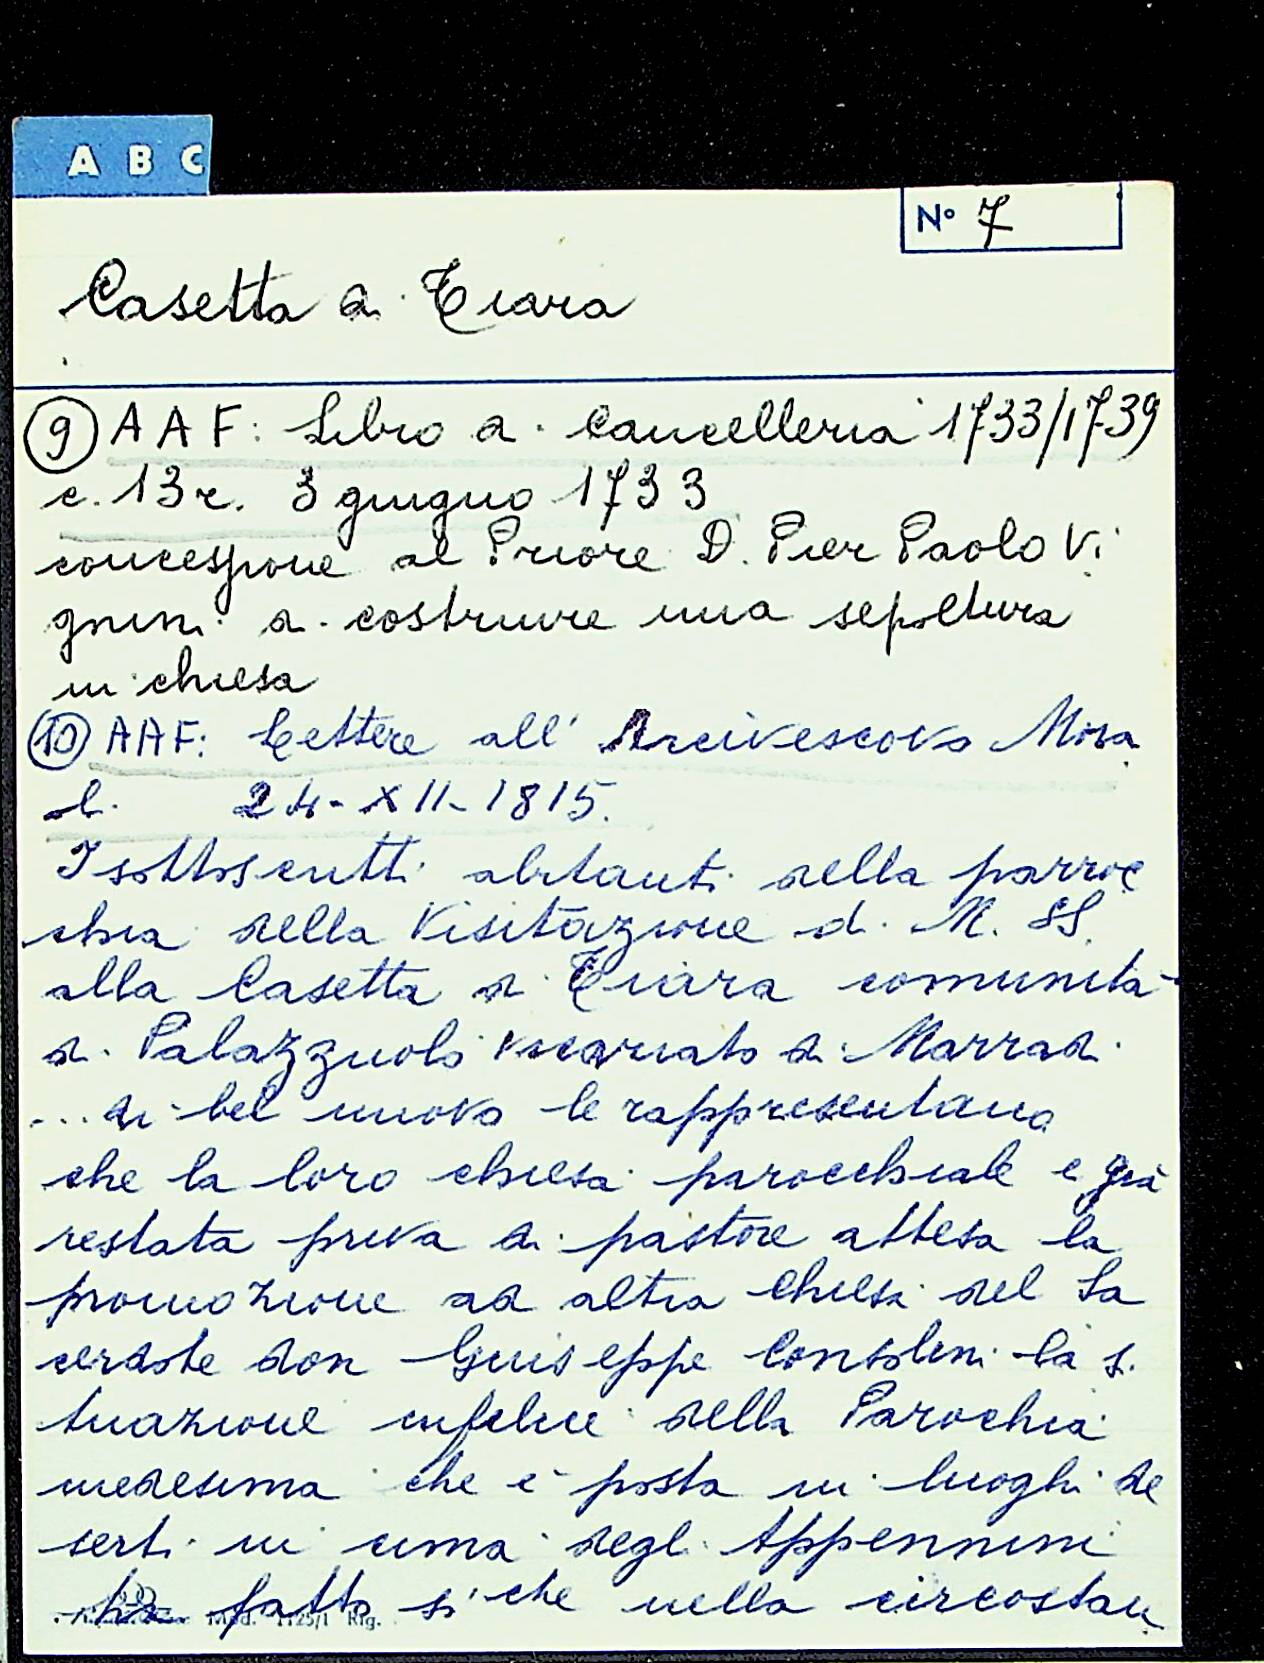 A B C
N° 7
Casetta di Tiara
9 AAF: Libro di Cancelleria 1733/1739
c. 13r. 3 giugno 1733
concessione al Priore D. Pier Paolo Vi
gnini di costruire una sepoltura
in chiesa
10 AAF: Lettere all'Arcivescovo Mora
li 24-XII-1815.
I sottoscritti abitanti della parroc
chia della Visitazione di M. SS.
alla Casetta di Tiara comunità
di Palazzuolo vicariato di Marradi
... di bel nuovo le rappresentano
che la loro chiesa parocchiale è già
restata priva di pastore attesa la
promozione ad altra Chiesa del Sa
cerdote don Giuseppe Consolini la si
tuazione infelice della Parochia
medesima che è posta in luoghi de
serti in cima degli Appennini
ha fatto sì che nella circostan
Mod. 1125/1 Rig.